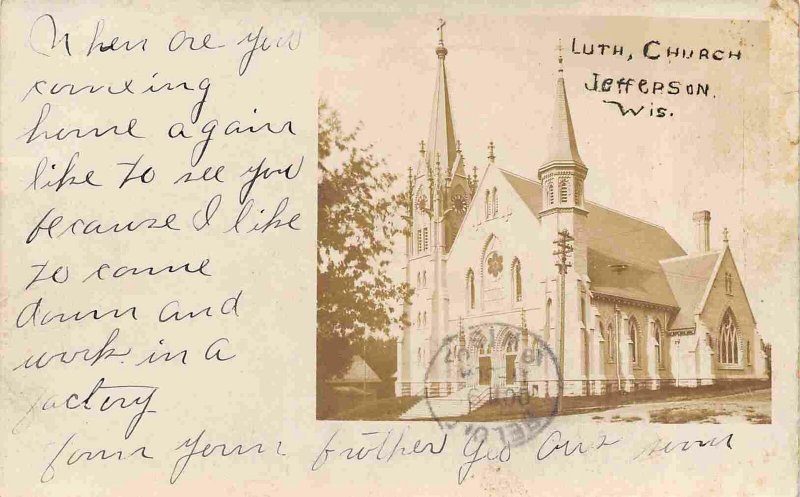 When are you
comeing
home again
like to see you
because I like
to come
down and
work in a
factory
from your brother Geo ans soon
LUTH, CHURCH
JEFFERSON.
WIS.
BELOIT
WIS.